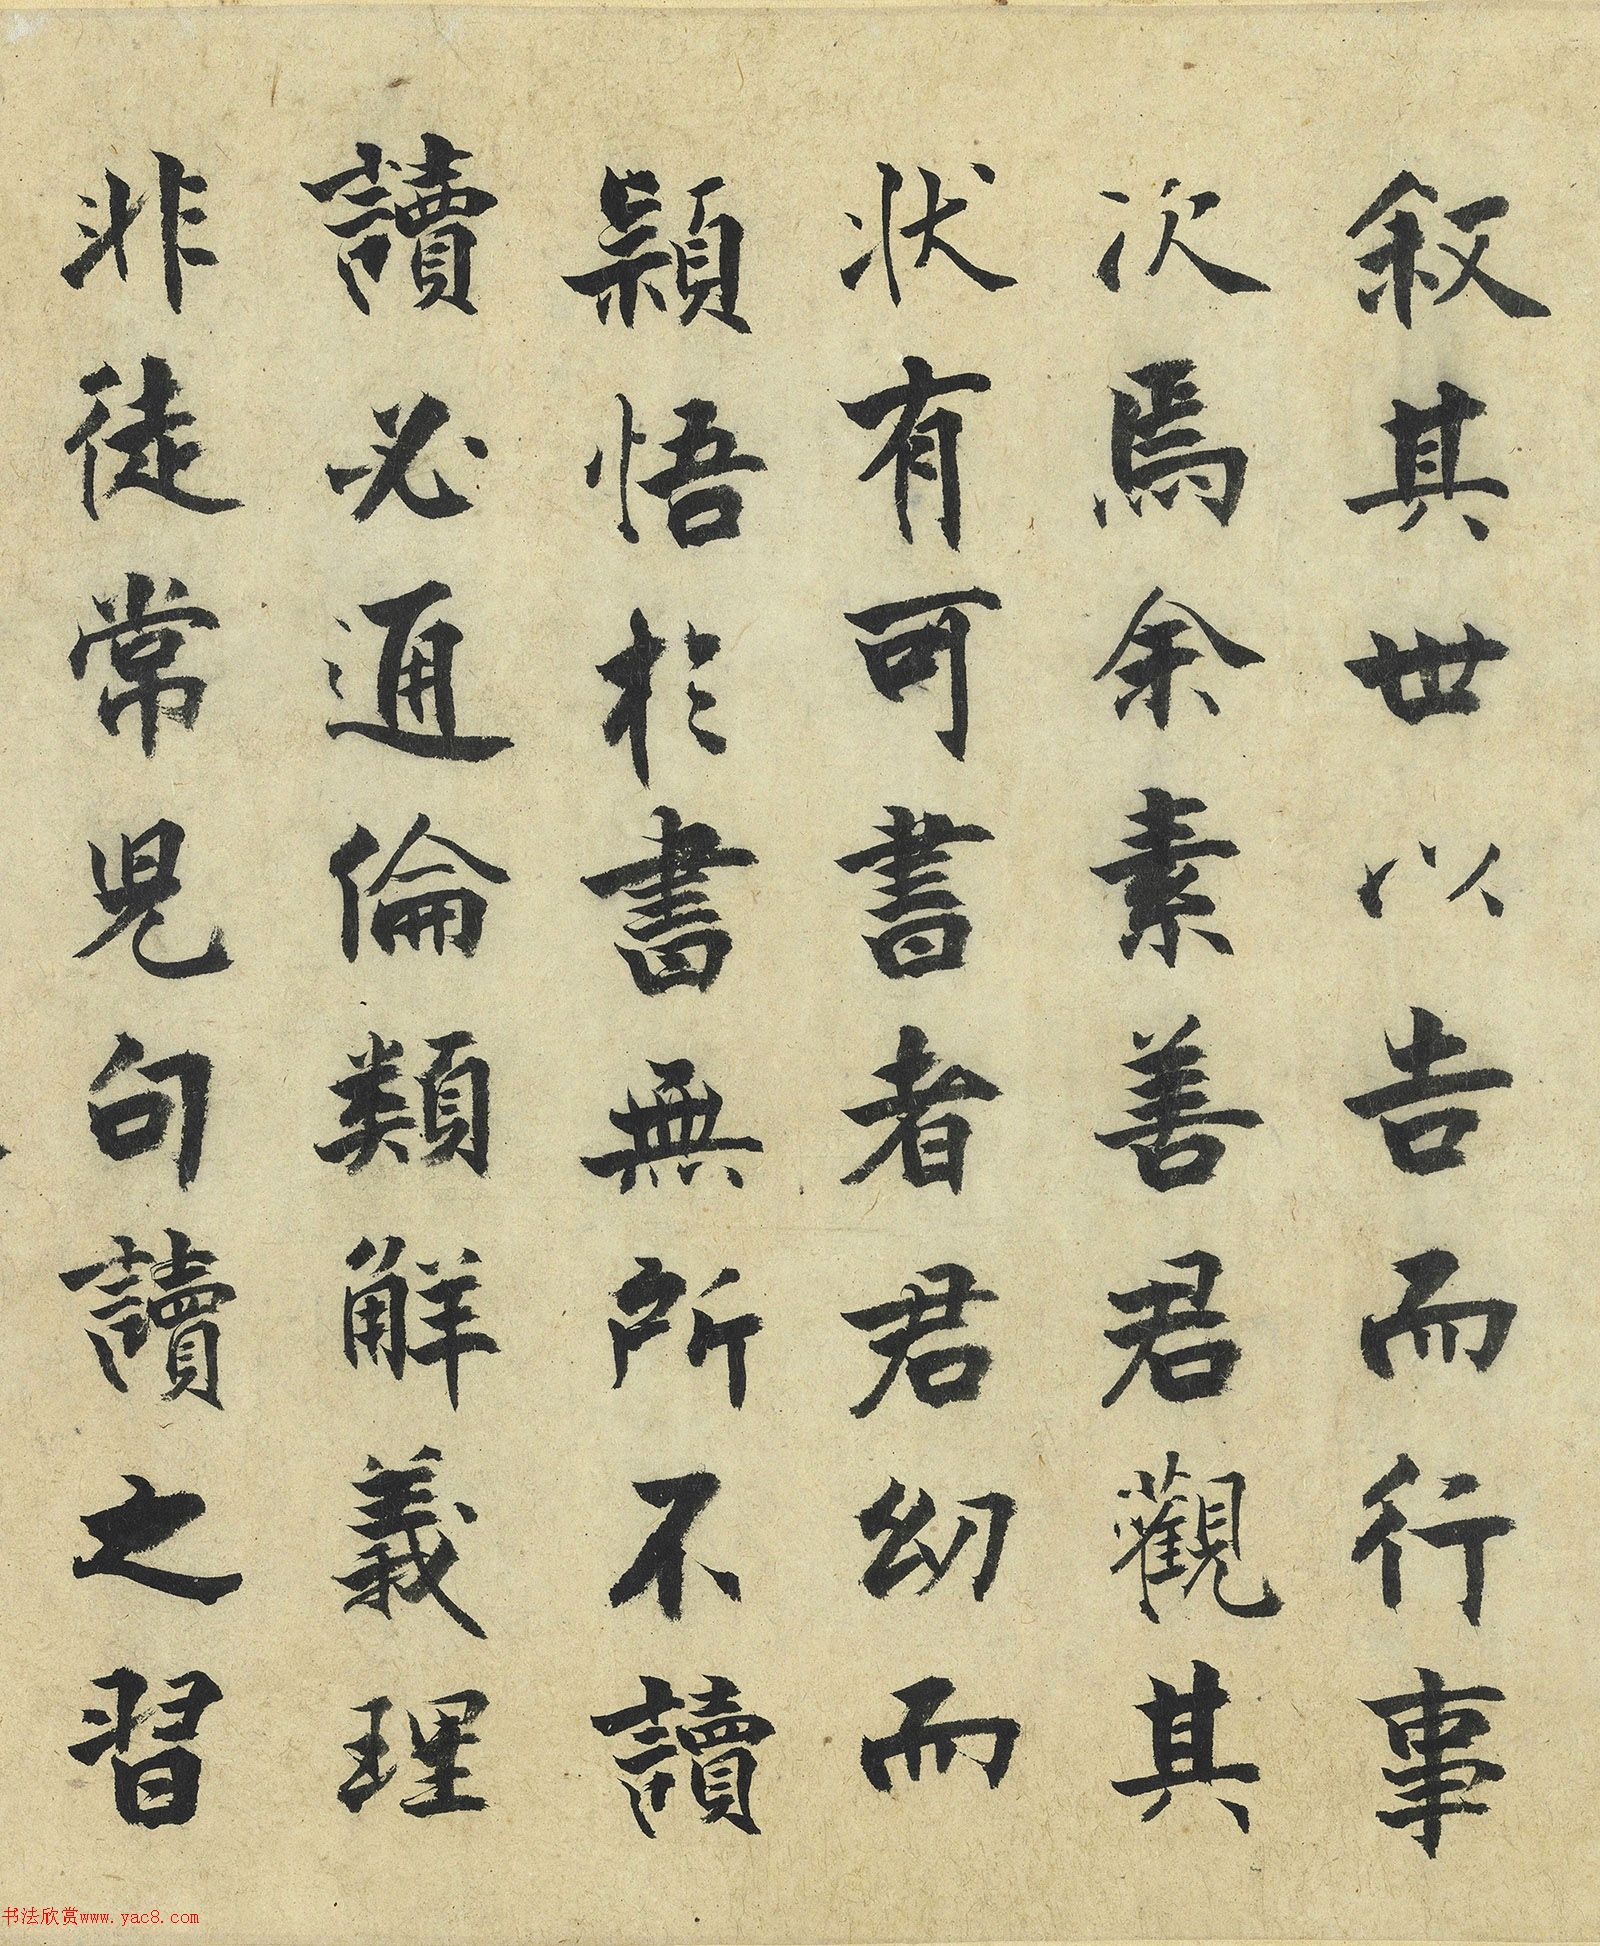 叙其世以告而行事
次焉余素善君觀其
狀有可書者君幼而
穎悟於書無所不讀
讀必通倫類解義理
非徒常児句讀之習
书法欣赏www.yac8.com